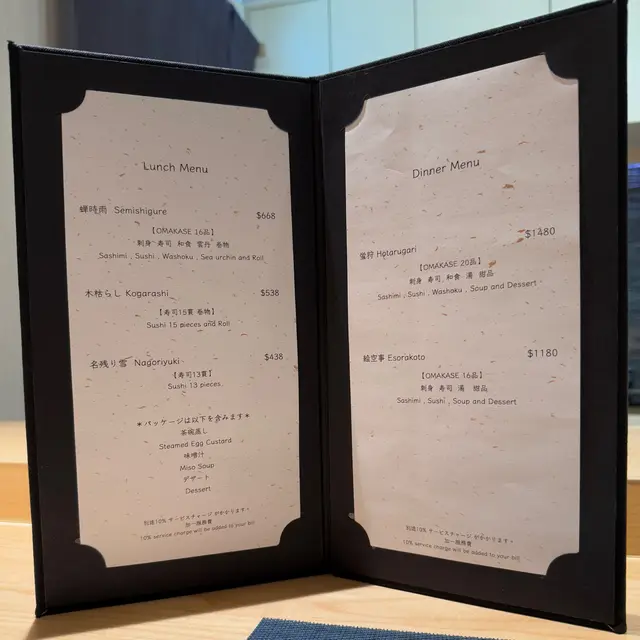 Lunch Menu
蝉時雨 Semishigure $668
【OMAKASE 16品】
刺身 寿司 和食 雲丹 巻物
Sashimi , Sushi , Washoku , Sea urchin and Roll
木枯らし Kogarashi $538
【寿司15貫 巻物】
Sushi 15 pieces and Roll
名残り雪 Nagoriyuki $438
【寿司13貫】
Sushi 13 pieces
＊パッケージは以下を含みます＊
茶碗蒸し
Steamed Egg Custard
味噌汁
Miso Soup
デザート
Dessert
別途10% サービスチャージがかかります。
加一服務費
10% service charge will be added to your bill
Dinner Menu
蛍狩 Hotarugari $1480
【OMAKASE 20品】
刺身 寿司 和食 湯 甜品
Sashimi , Sushi , Washoku , Soup and Dessert
絵空事 Esorakoto $1180
【OMAKASE 16品】
刺身 寿司 湯 甜品
Sashimi , Sushi , Soup and Dessert
別途10% サービスチャージがかかります。
加一服務費
10% service charge will be added to your bill